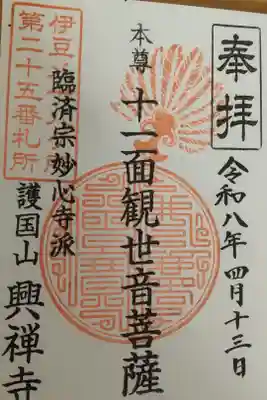 奉拝
令和八年四月十三日
本尊
十一面観世音菩薩
伊豆
第二十五番札所
臨済宗妙心寺派
護国山 興禅寺